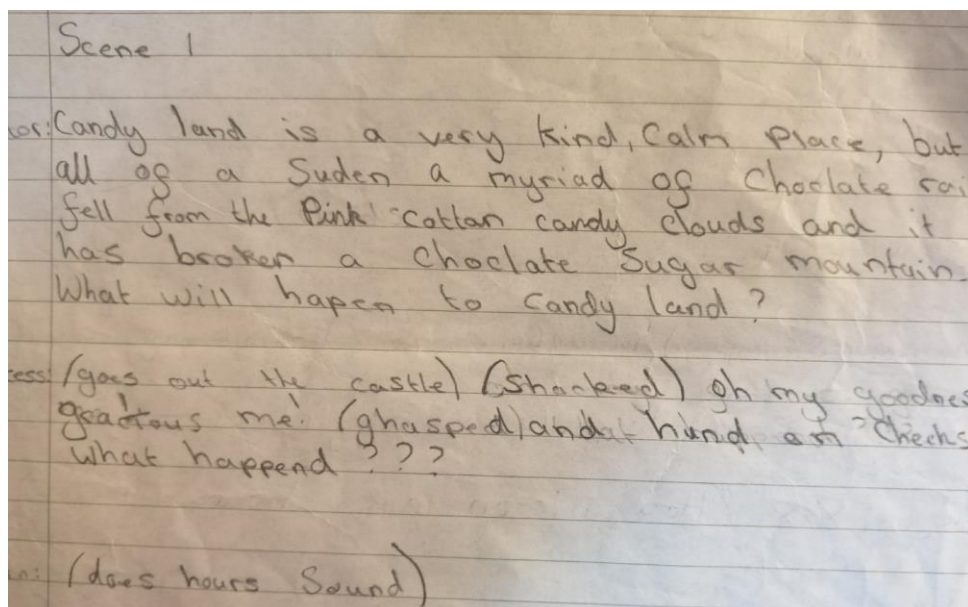 Scene 1
or: Candy land is a very kind, Calm Place, but
all of a Suden a myriad of Choclate rai
fell from the Pink cottan candy clouds and it
has broken a choclate Sugar mountain.
What will hapen to candy land?
ess: (goes out the castle) (Shocked) Oh my goodnes
me! (ghasped) and hand on Cheeks
What happend ???
(does hours Sound)